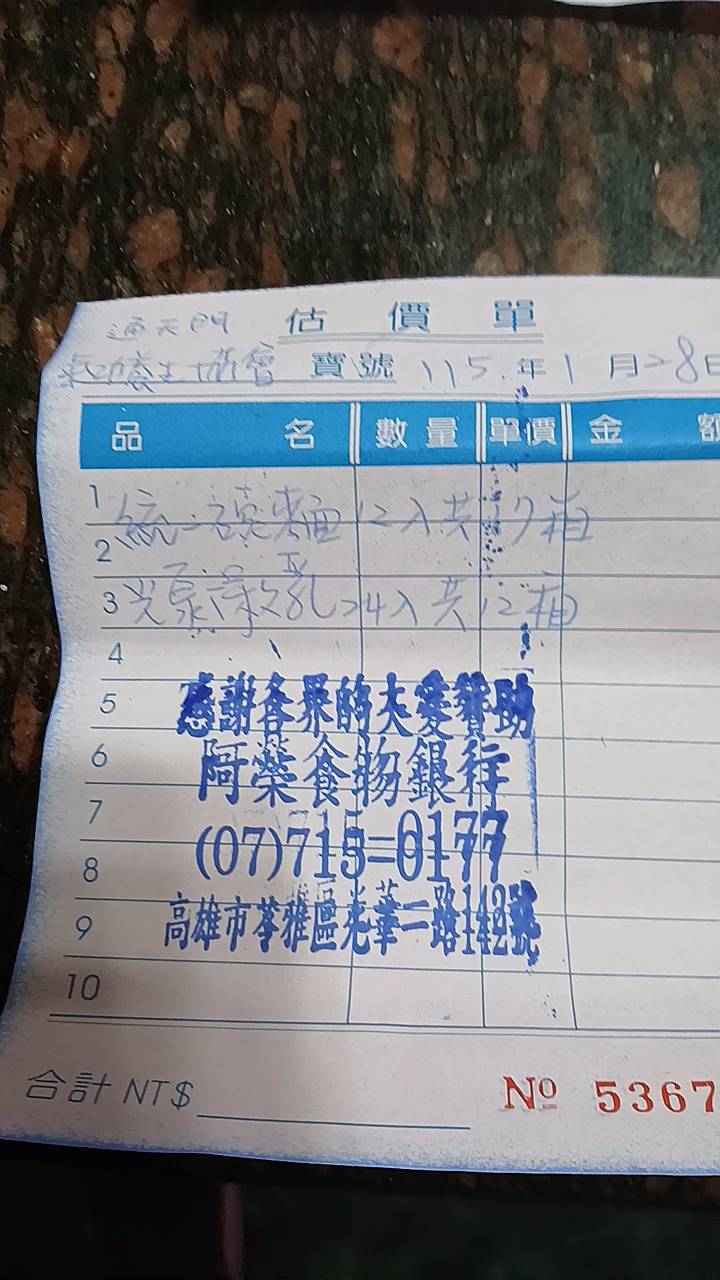 估價單
通天門
氣功養生協會 寶號 115年1月28日
品名 數量 單價 金額
1 統一麵 12入共17箱
2
3 光泉漱乳 24入共12箱
4
5
感謝各界的大愛贊助
6
阿榮食物銀行
7
(07)715-0177
8
9
高雄市苓雅區光華二路142號
10
合計 NT$
No 5367